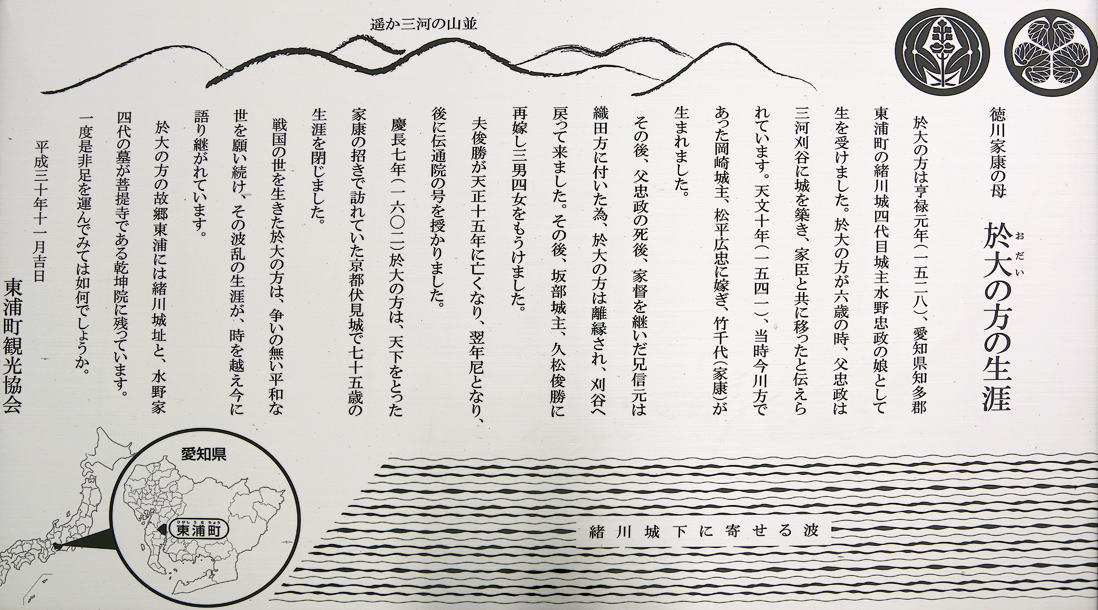 遥か三河の山並
徳川家康の母　於大の方の生涯
おだい
於大の方は享禄元年(一五二八)、愛知県知多郡
東浦町の緒川城四代目城主水野忠政の娘として
生を受けました。於大の方が六歳の時、父忠政は
三河刈谷に城を築き、家臣と共に移ったと伝えら
れています。天文十年(一五四一)、当時今川方で
あった岡崎城主、松平広忠に嫁ぎ、竹千代(家康)が
生まれました。
その後、父忠政の死後、家督を継いだ兄信元は
織田方に付いた為、於大の方は離縁され、刈谷へ
戻って来ました。その後、坂部城主、久松俊勝に
再嫁し三男四女をもうけました。
夫俊勝が天正十五年に亡くなり、翌年尼となり、
後に伝通院の号を授かりました。
慶長七年(一六〇二)於大の方は、天下をとった
家康の招きで訪れていた京都伏見城で七十五歳の
生涯を閉じました。
戦国の世を生きた於大の方は、争いの無い平和な
世を願い続け、その波乱の生涯が、時を越え今に
語り継がれています。
於大の方の故郷東浦には緒川城址と、水野家
四代の墓が菩提寺である乾坤院に残っています。
一度是非足を運んでみては如何でしょうか。
平成三十年十一月吉日
東浦町観光協会
愛知県
ひがしうらちょう
東浦町
緒川城下に寄せる波